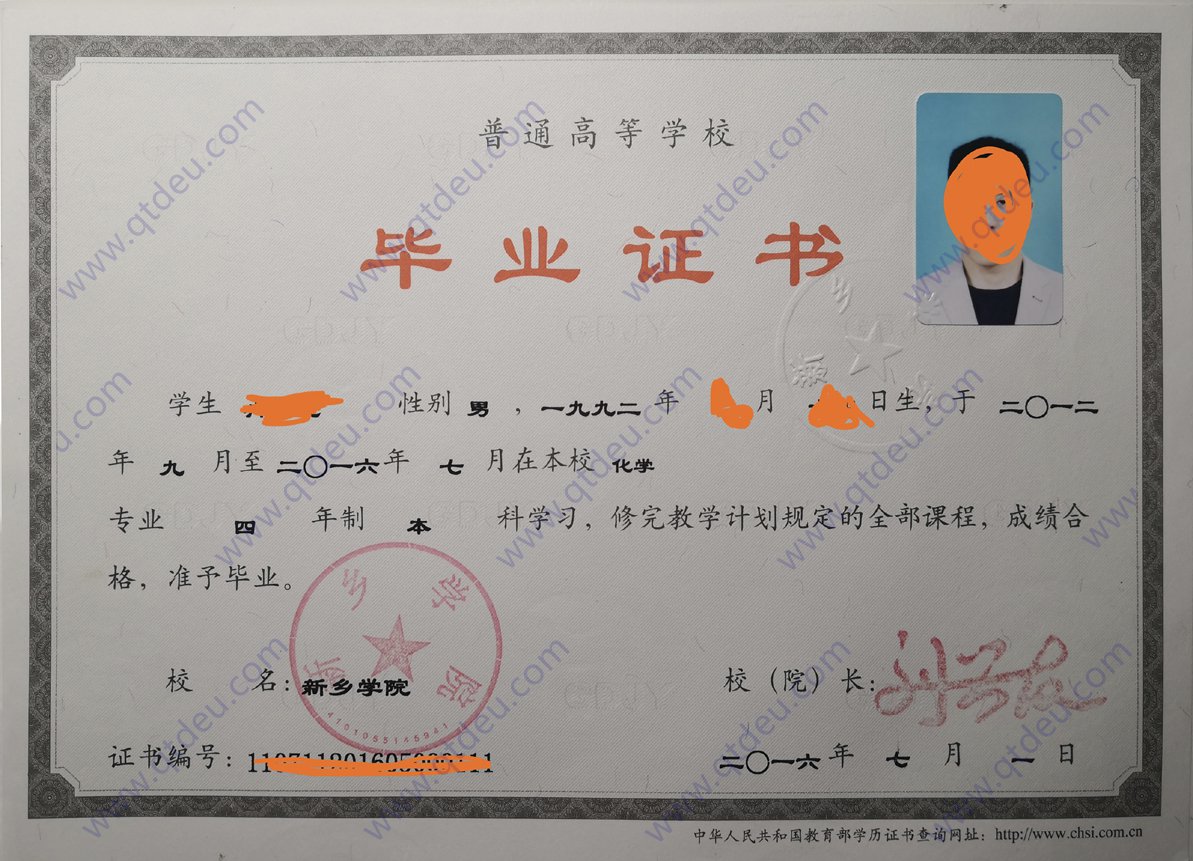 普通高等学校
毕业证书
学生 性别 男 ，一九九二 年 月 日生，于 二〇一二
年 九 月至 二〇一六年 七 月在本校 化学
专业 四 年制 本 科学习，修完教学计划规定的全部课程，成绩合
格，准予毕业。
新乡学院
4101055145941
校 名：新乡学院 校（院）长：
证书编号： 二〇一六 年 七 月 一 日
中华人民共和国教育部学历证书查询网址：http://www.chsi.com.cn
www.qtdeu.com